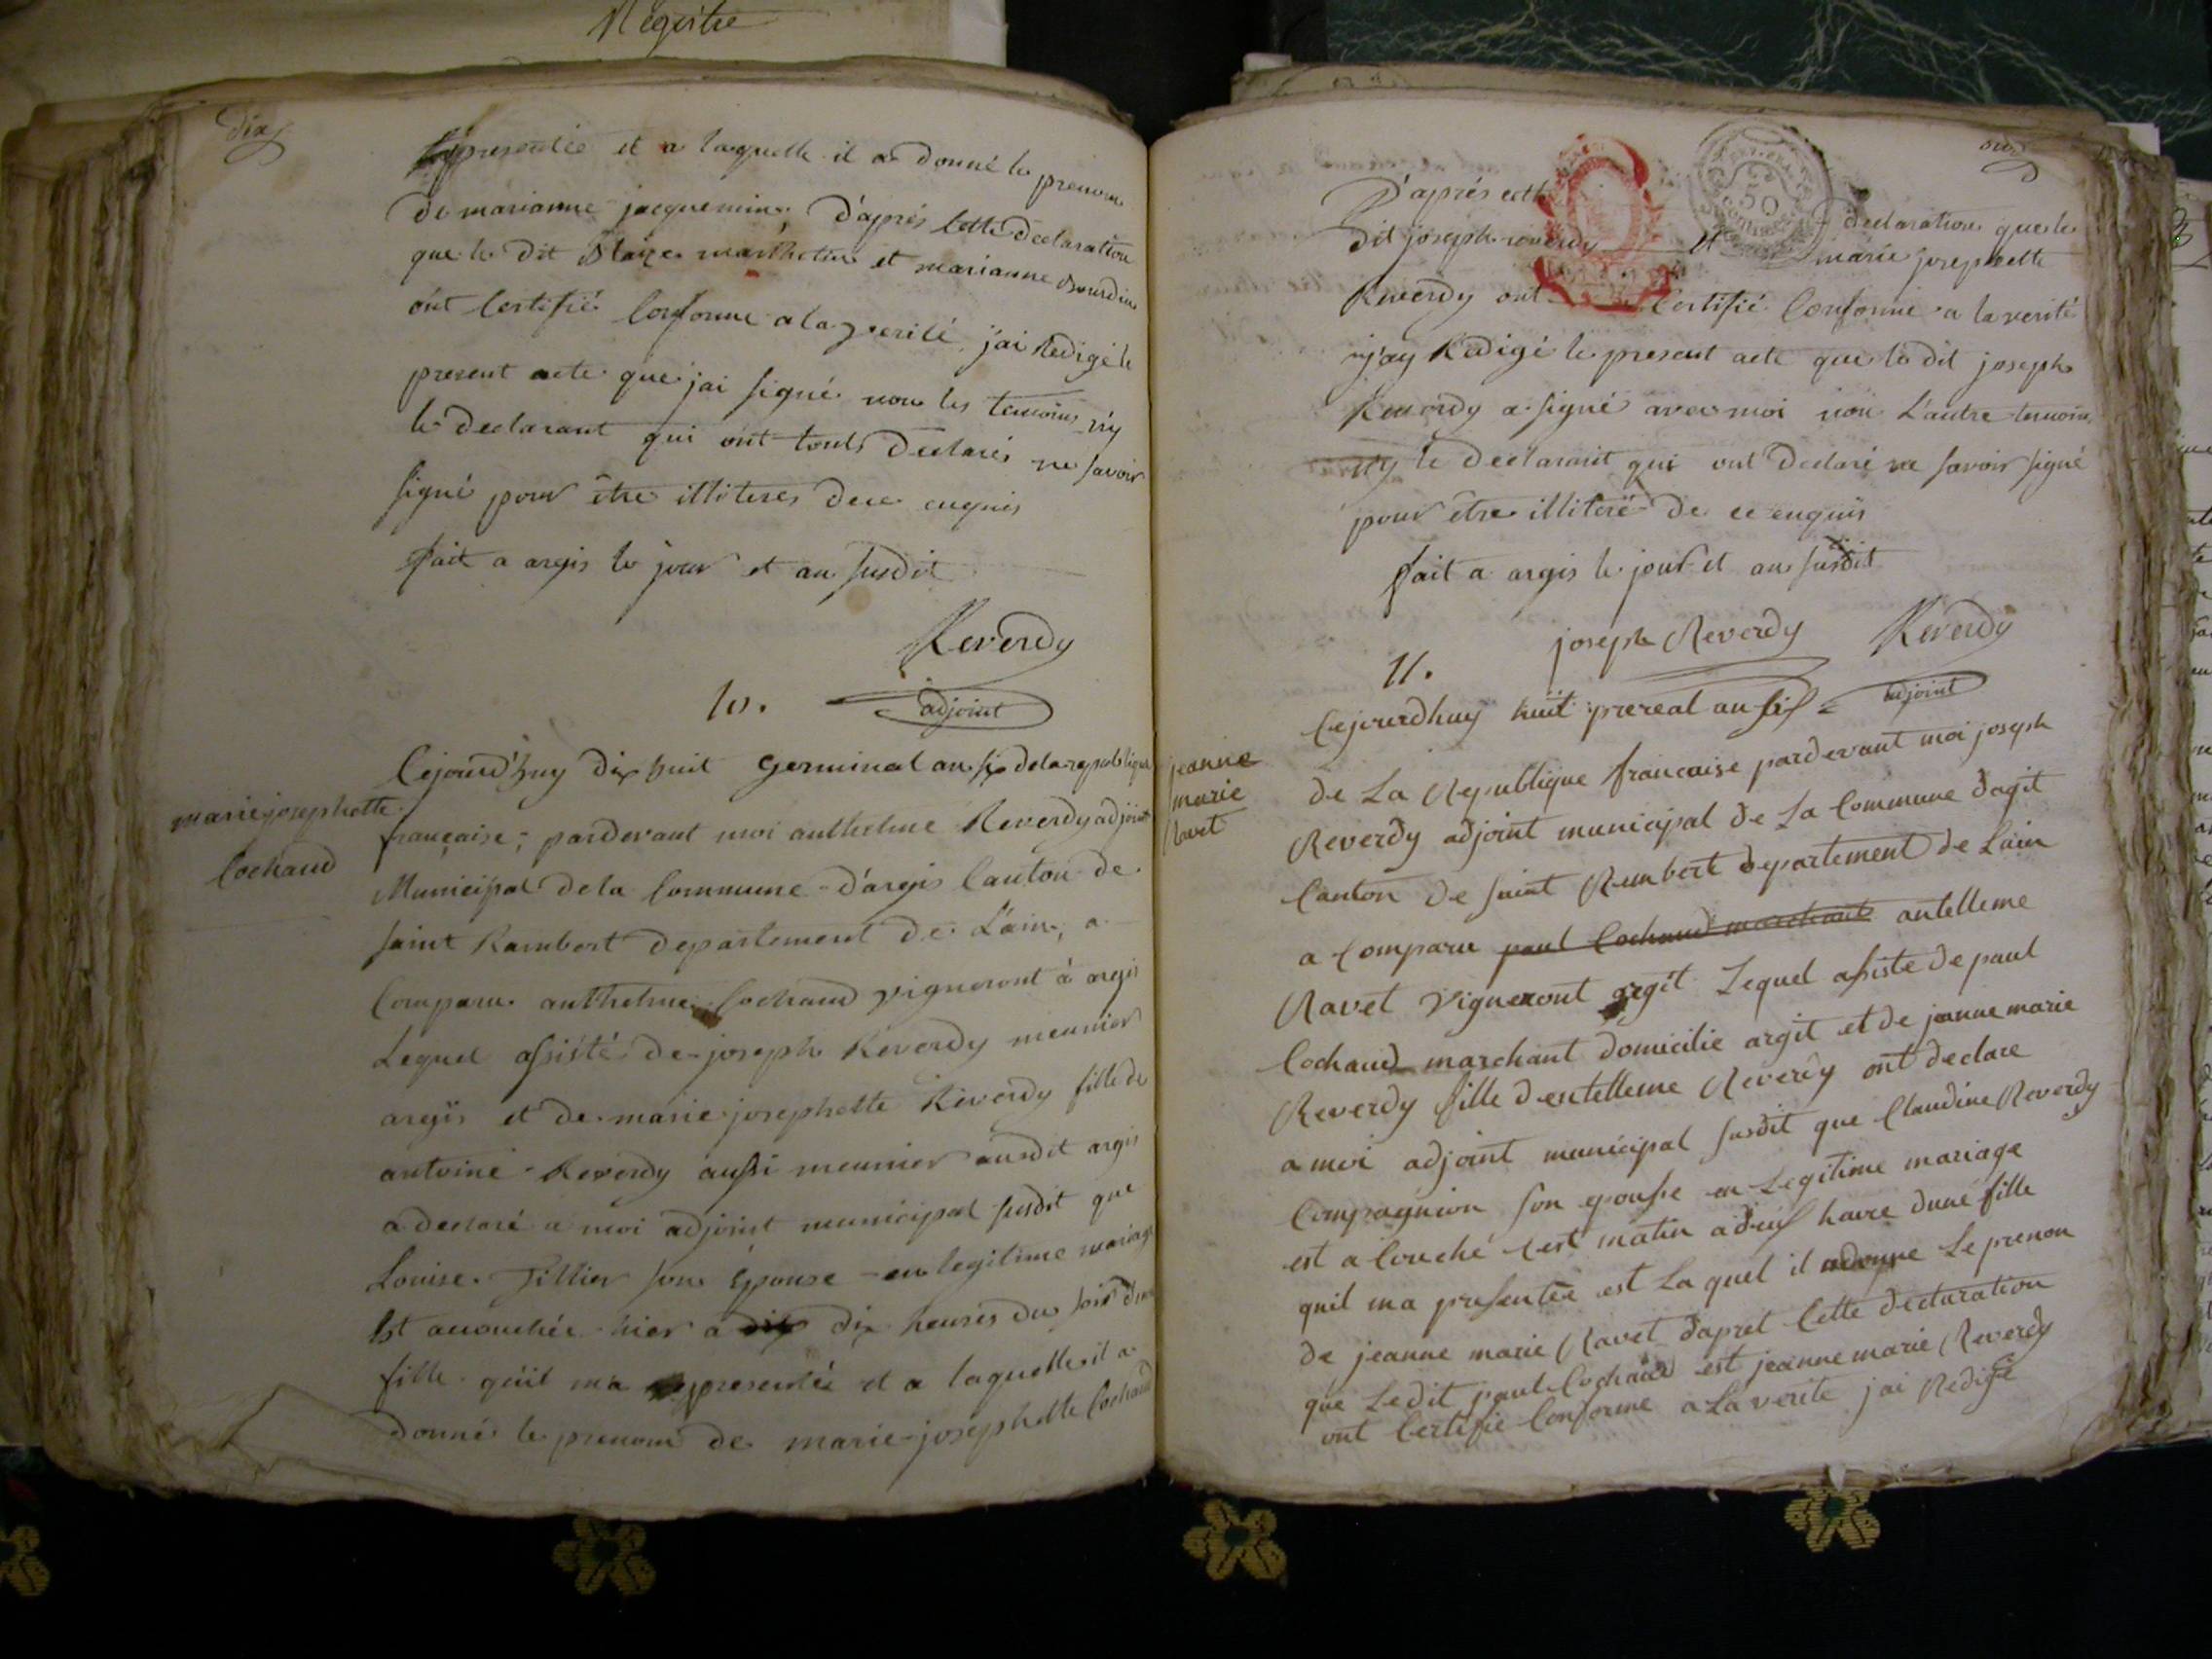 Registre
dix
représentée et a laquelle il a donné le prenom
de marianne jacquemine, D'aprés cette declaration
que le dit Blaize marthelin et marianne Bourdin
ont certifié conforme a la verité j'ai Redigé le
present acte que jai signé non les temoins n'y
le declarant qui ont touts declarés ne savoir
signé pour être illiteres de ce enquis
fait a argis le jour et an susdit
Reverdy
adjoint
10.
marie josephette
Cochaud
Cejourd'huy dix huit Germinal an six de la republique
française; pardevant moi anthelme Reverdy adjoint
Municipal de la Commune d'argis Canton de
saint Rambert departement de L'ain, a
Comparu anthelme Cochaud vigneront à argis
Lequel assisté de joseph Reverdy meunier
argis et de marie josephette Reverdy fille de
antoine Reverdy aussi meunier ausdit argis
a declaré a moi adjoint municipal susdit que
Louise Tillier son épouse en legitime mariage
Est accouchée hier a dix dix heures du soir d'une
fille qu'il m'a représentée et a laquelle il a
donné le prenom de marie josephette Cochaud
onze
50
D'aprés cette declaration que le
dit joseph reverdy et marie josephette
Reverdy ont Certifié Conforme a la verité
j'ay Redigé le present acte que le dit joseph
Reverdy a signé avec moi non L'autre temoin
n'y le declarant qui ont declaré ne savoir signé
pour être illiteré de ce enquis
fait a argis le jour et an susdit
joseph Reverdy Reverdy
adjoint
11.
jeanne
marie
Ravet
Cejourdhuy huit prereal an six
de La Republique francaise pardevant moi joseph
Reverdy adjoint municipal de La Commune dagit
Canton de saint Rembert departement de Lain
a Comparu paul Cochaud marchant antelleme
Ravet vigneront argit Lequel assiste de paul
Cochaud marchant domicilie argit et de jeanne marie
Reverdy fille dentelleme Reverdy ont declare
a moi adjoint municipal susdit que Claudine Reverdy
Compagnion son epousse en Legitime mariage
est a Couché cest matin a deuf havre dune fille
quil ma presentée est La quel il adonne Le prenon
de jeanne marie Ravet dapret Cette declaration
que Ledit paul Cochaud est jeanne marie Reverdy
ont Certifie Conforme a La verite jai Redigé